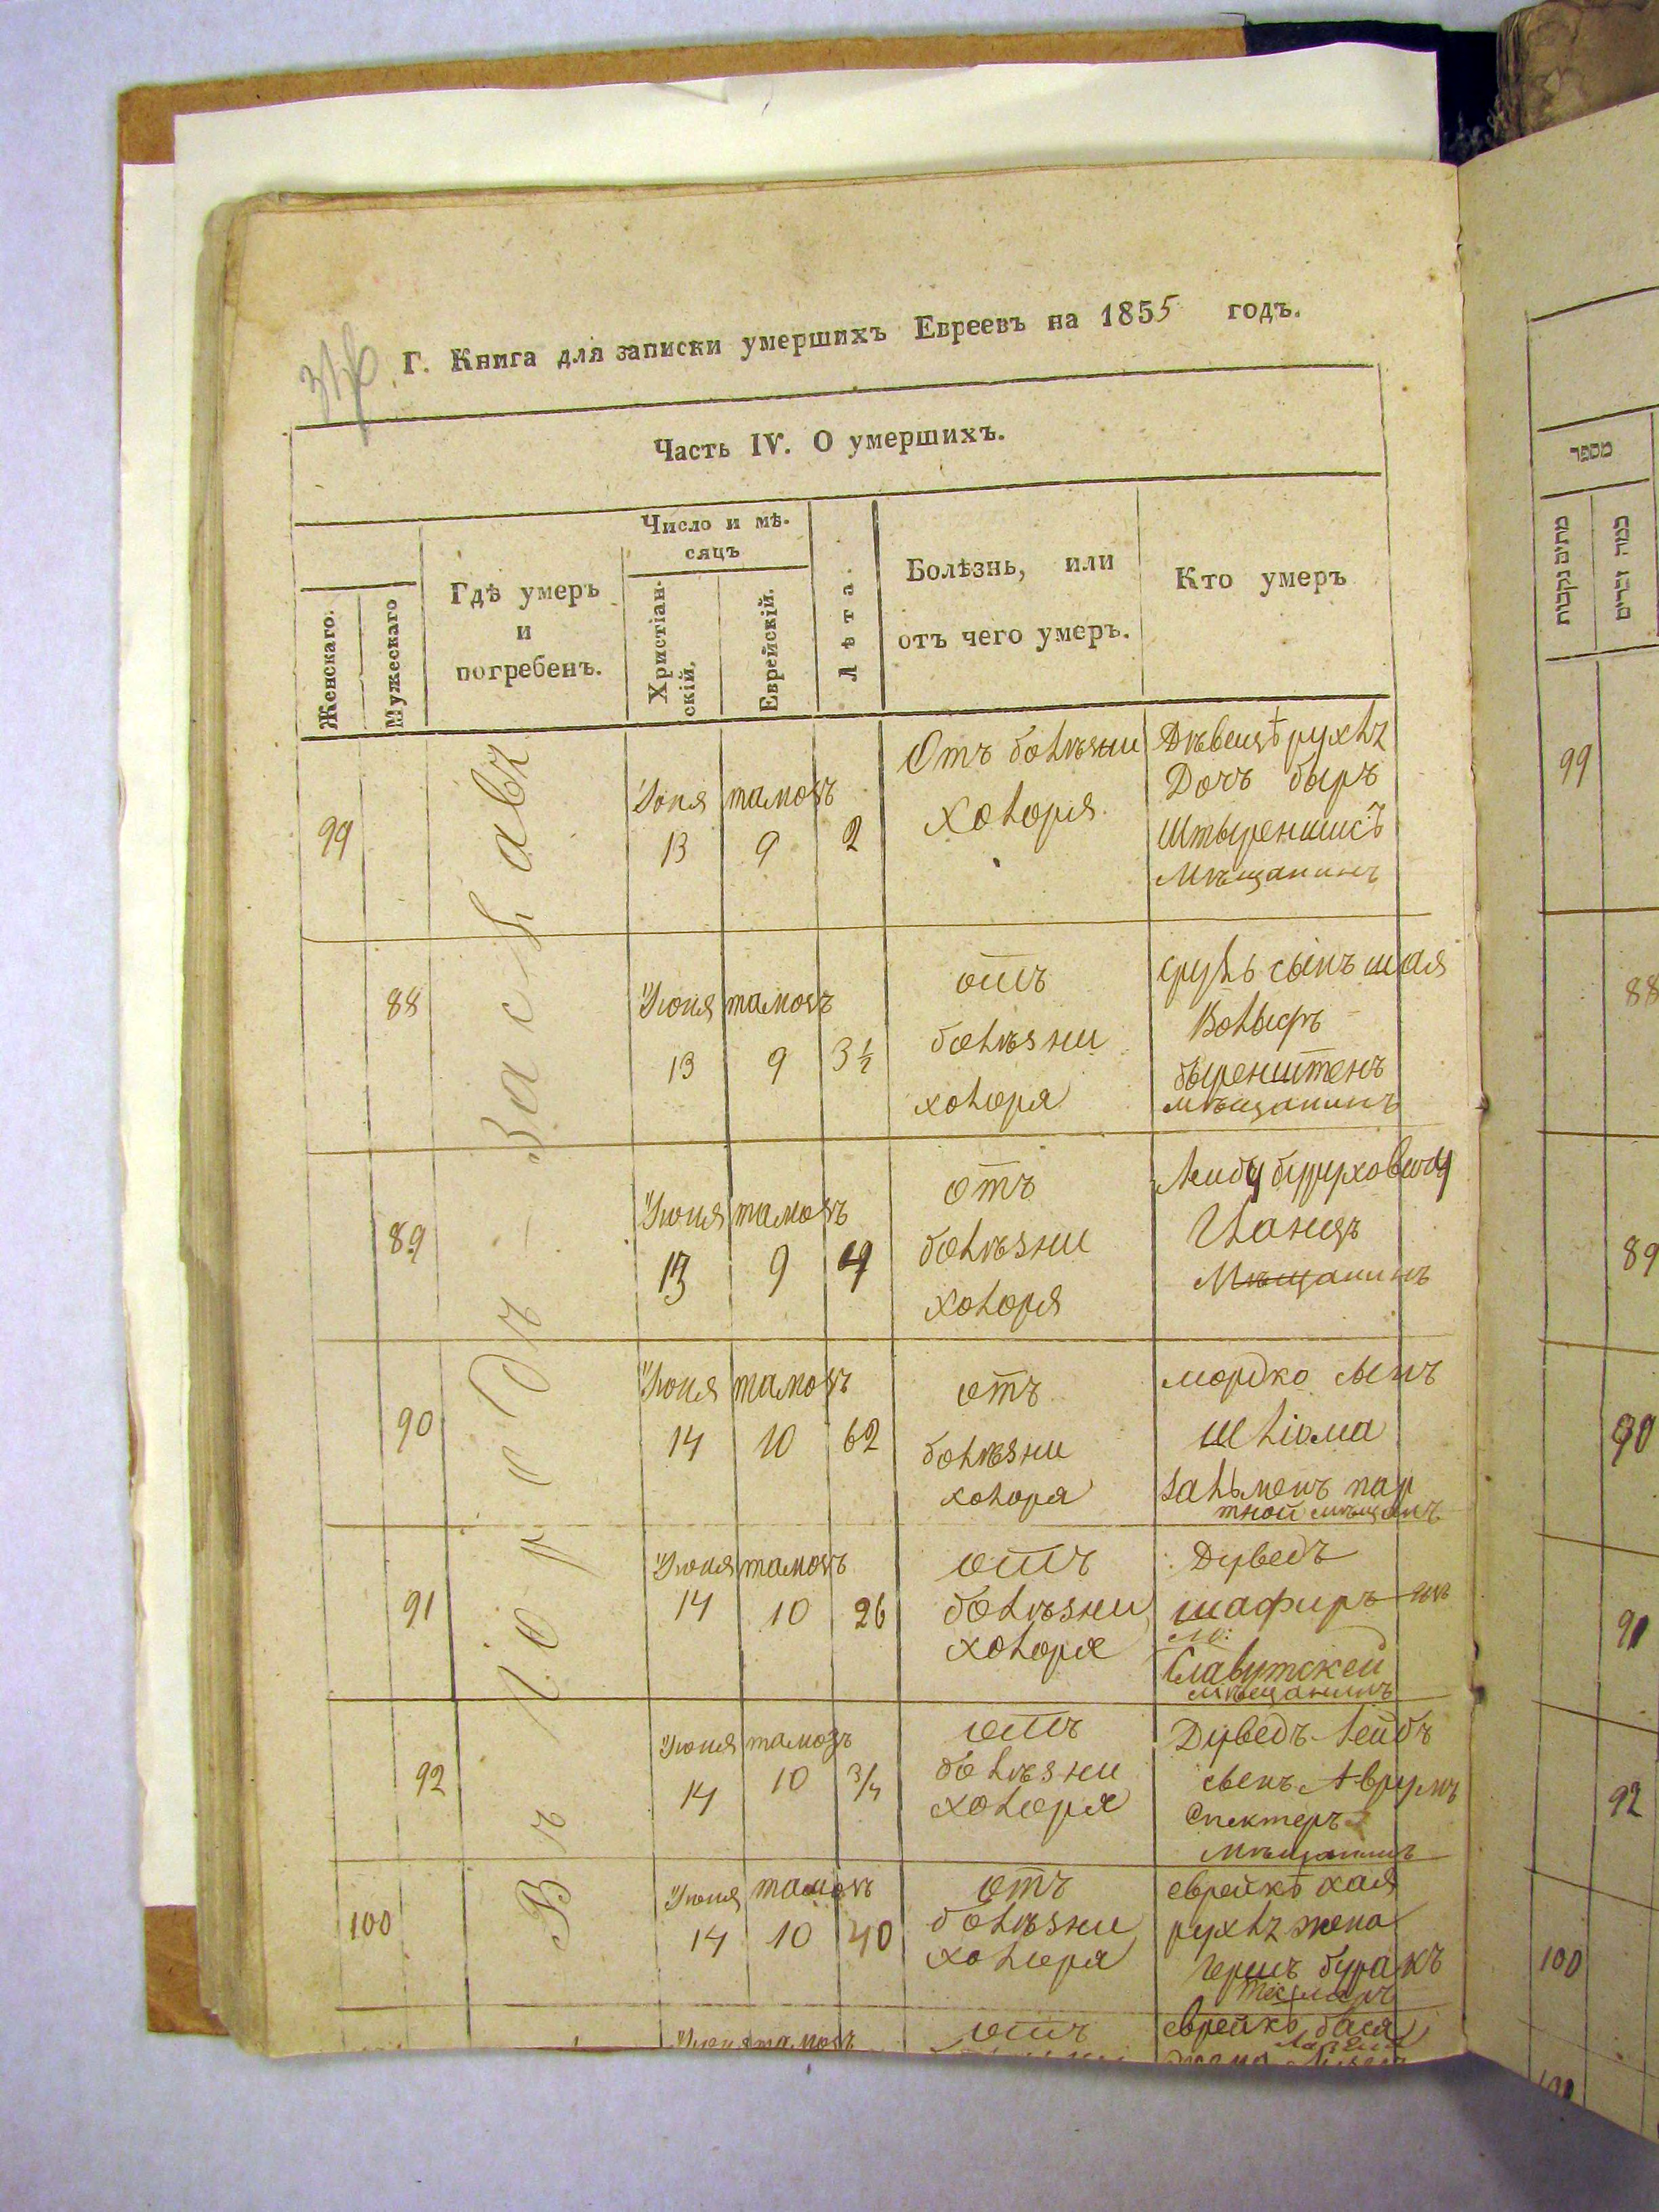 316
Г. Книга для записки умершихъ Евреевъ на 1855 годъ.
Часть IV. О умершихъ.
Женскаго.
Мужескаго
Гдѣ умеръ
и
погребенъ.
Число и мѣ-
сяцъ
Христіан-
скій.
Еврейскій.
Лѣта.
Болѣзнь, или
отъ чего умеръ.
Кто умеръ
Въ городѣ Заславѣ
99
Июня тамозъ
13 9 2
Отъ болѣзни
холоря
Дѣвецѣ рухлъ
Дочъ быръ
Штыреншисъ
Мѣщанинъ
88
Июня тамозъ
13 9 3½
отъ
болѣзни
холоря
сруль сынъ шая
Вольфъ
быренштенъ
мѣщанинъ
89
Июня тамозъ
13 9
отъ
болѣзни
холоря
Мѣщанинъ
90
Июня тамозъ
14 10 62
отъ
болѣзни
холоря
мордко сынъ
шліома
зальменъ пар
тной мѣщанъ
91
Июня тамозъ
14 10 26
отъ
болѣзни
холоря
Дуведъ
шафиръ
Славутскей
мѣщанинъ
92
Июня тамозъ
14 10 3/4
отъ
болѣзни
холоря
Дуведъ Лейбъ
сынъ Аврумъ
Спектеръ
Мѣщанинъ
100
Июня тамозъ
14 10 40
отъ
болѣзни
холоря
еврейкѣ хая
рухлъ жена
гершъ буракъ
еврейкѣ бася
Июня тамозъ
отъ
מספר
מתים נקבות
כמה זכרים
99
88
89
90
91
92
100